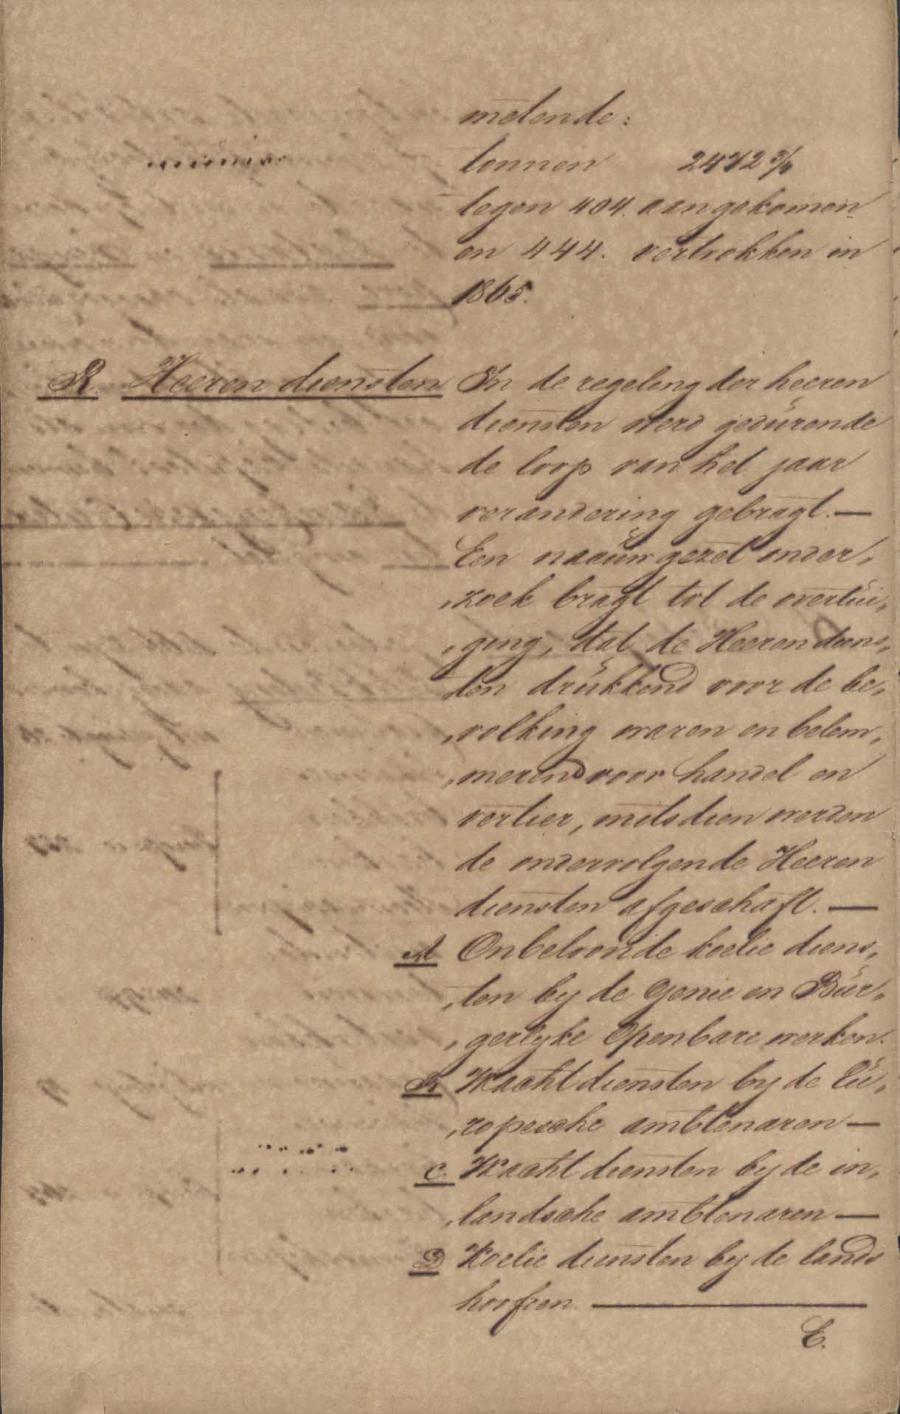 metende:
tonnen 2472 3/4
tegen 404. aangekomen
en 444. vertrokken in
1865.
R. Heeren diensten In de regeling der heeren
diensten werd gedurende
de loop van het jaar
verandering gebragt. —
Een naauwgezet onder,
,zoek bragt tot de overtui,
,ging, dat de Heeren diens,
ten drukkend voor de be,
,volking waren en belem,
,merend voor handel en
vertier, mitsdien werden
de ondervolgende Heeren
diensten afgeschaft. —
A Onbeloonde koelie diens,
,ten by de Genie en Bur,
,gerlyke Openbare werken.
B Wacht diensten by de Eu,
,ropesche ambtenaren —
C. Wacht diensten by de in,
,landsche ambtenaren —
D Koelie diensten by de lands
hoofden —
E.